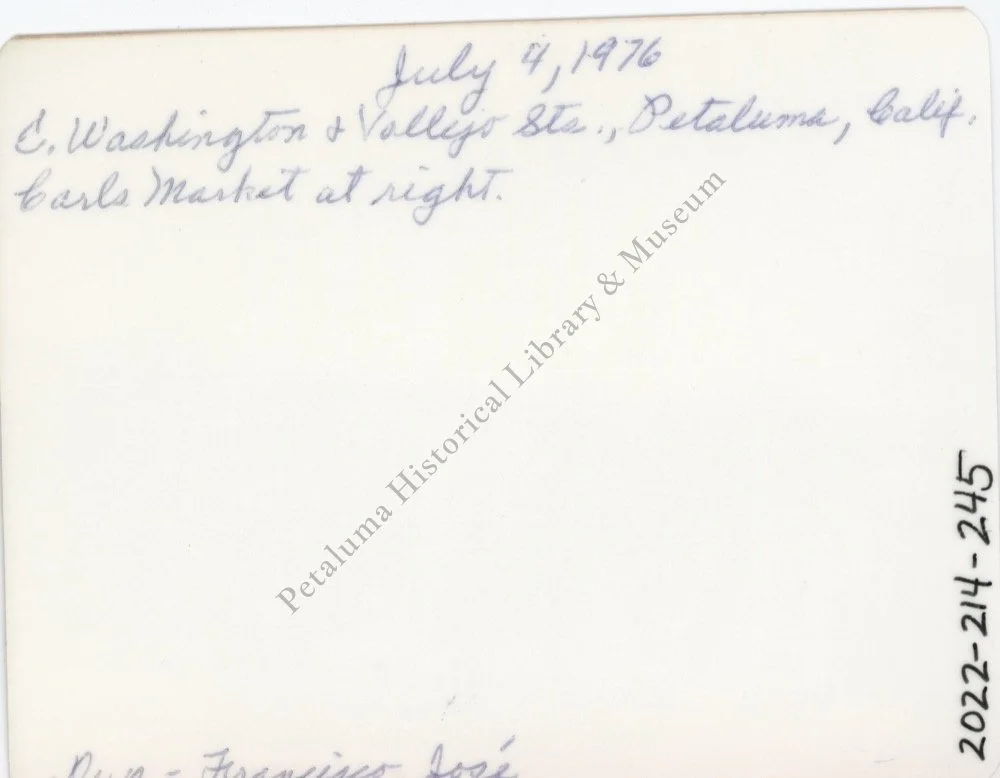 July 4, 1976
E. Washington & Vallejo Sts., Petaluma, Calif.
Carls Market at right.
Petaluma Historical Library & Museum
2022-214-245
- Francisco José